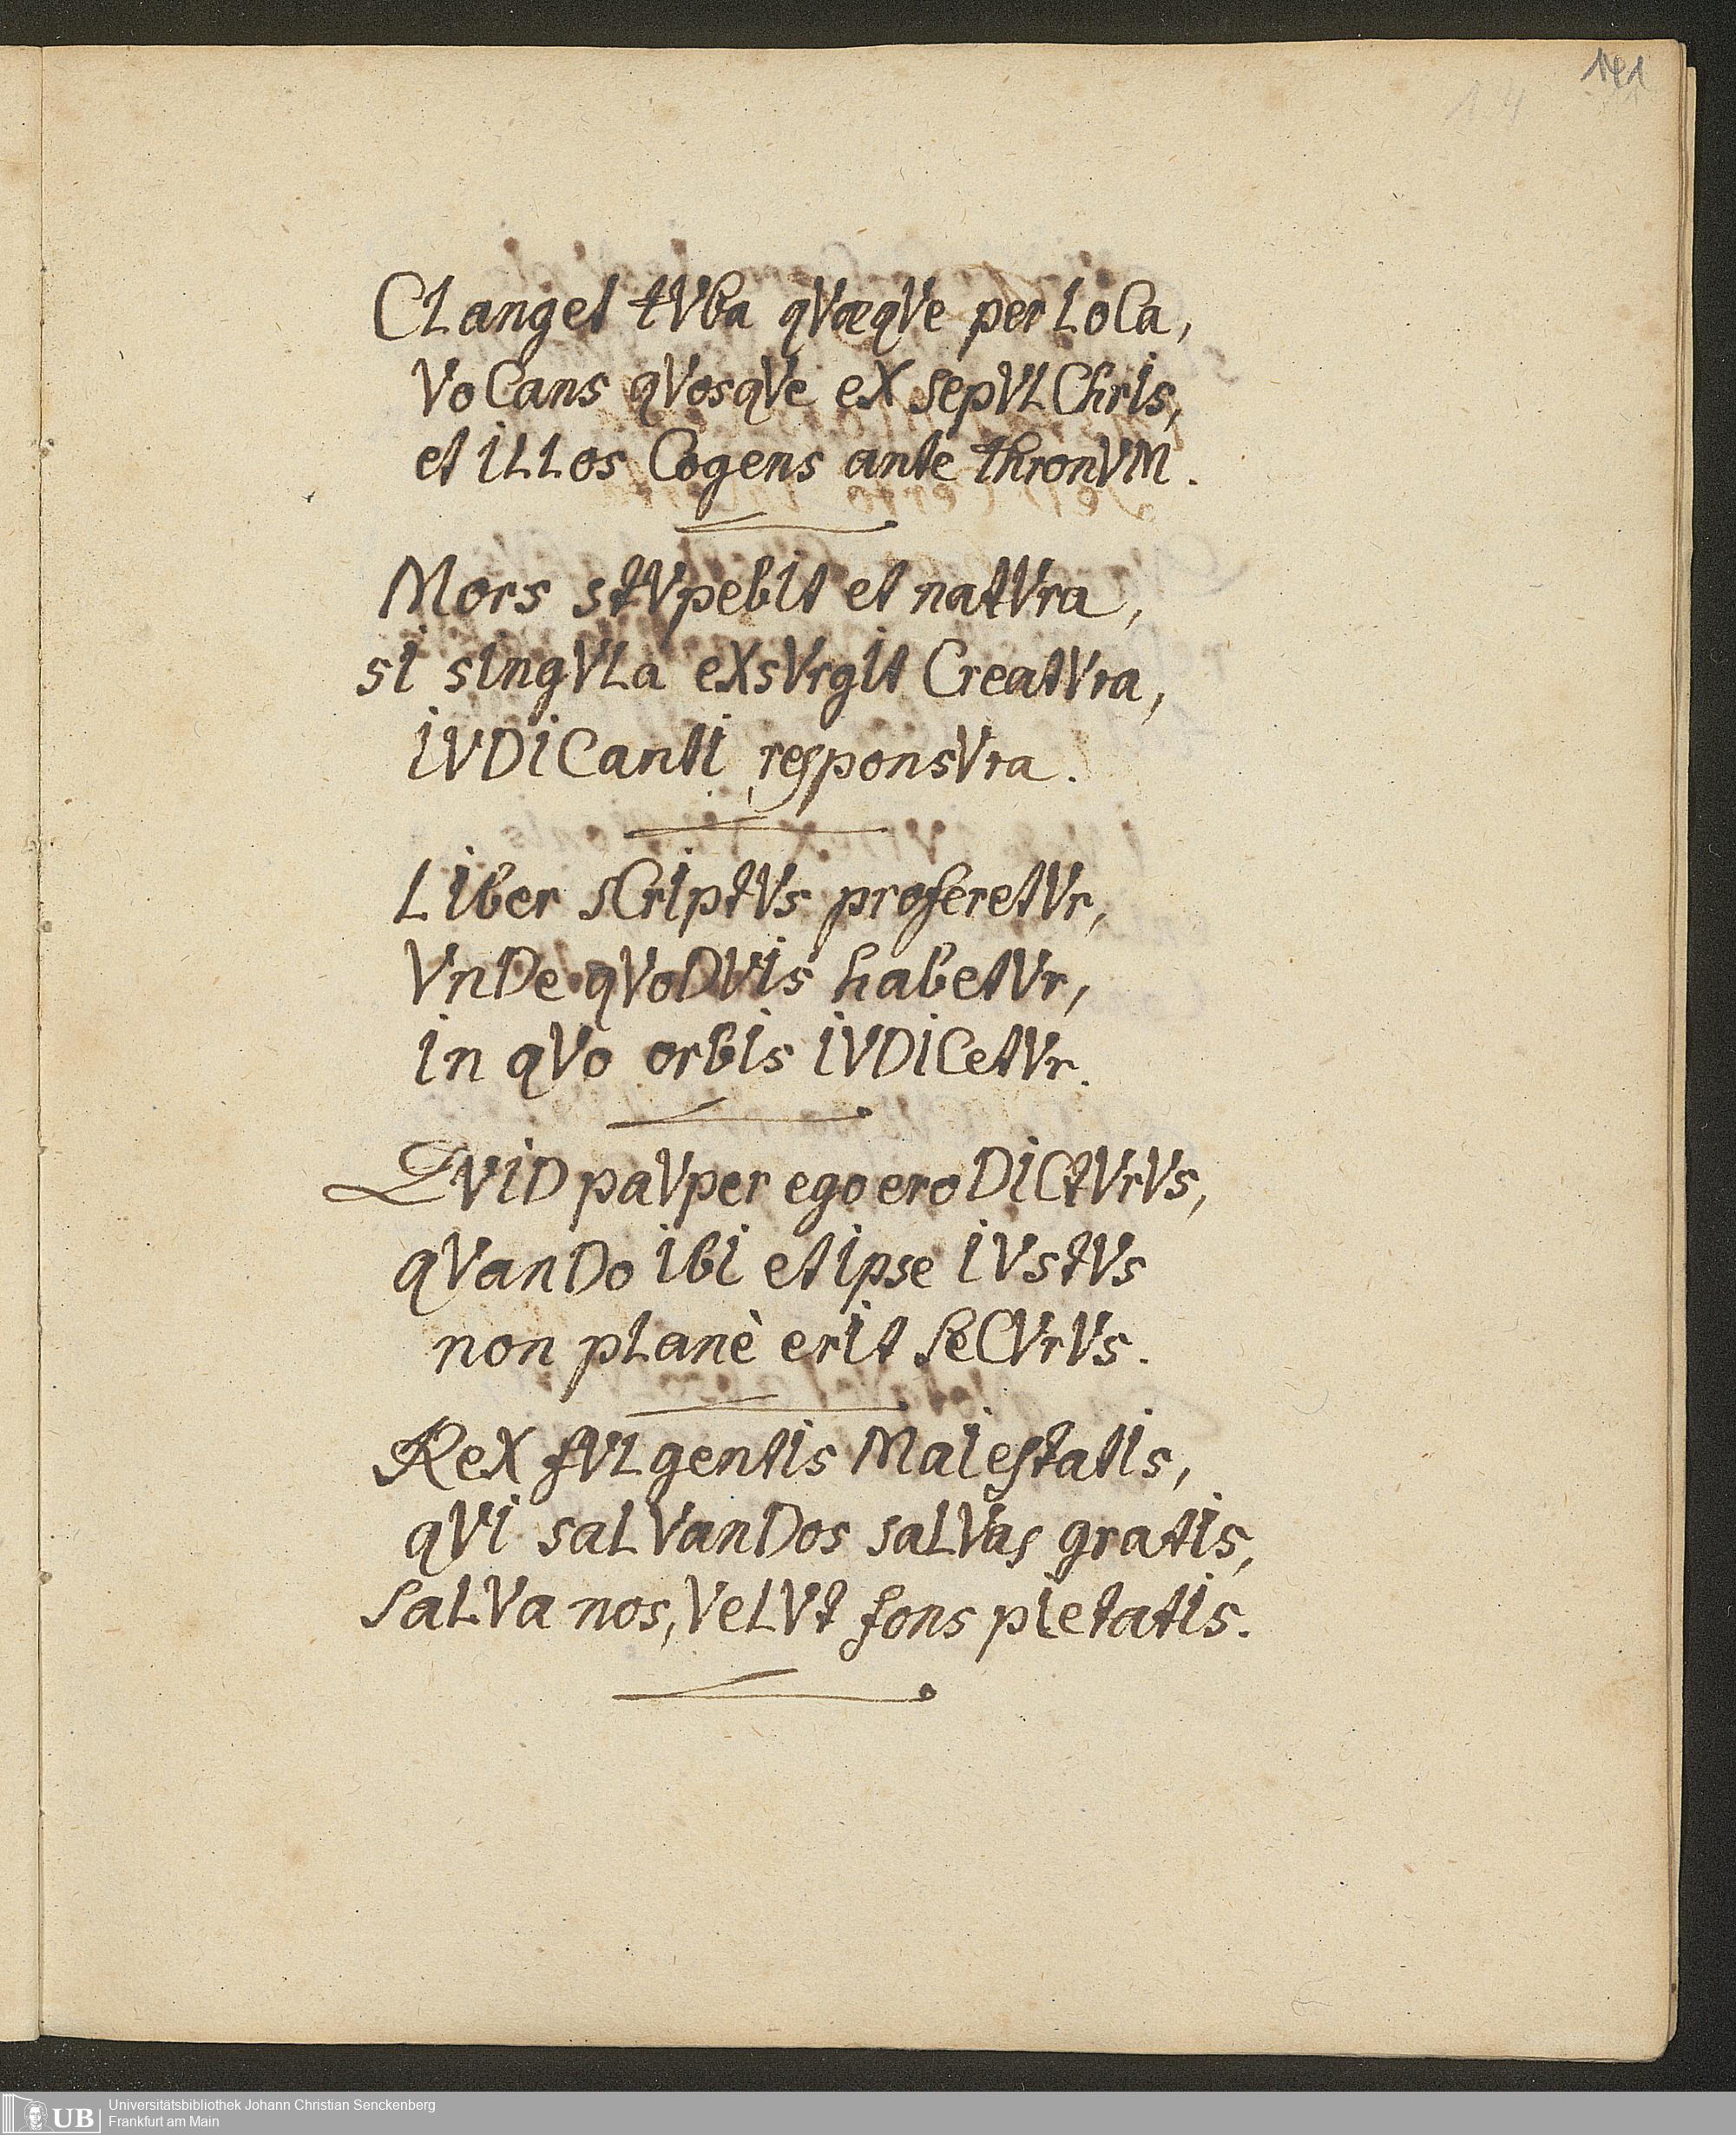 141
14
CLanget tVba qVæqVe per LoCa,
VoCans qVosqVe eX sepVLChrIs,
et ILLos Cogens ante thronVM.
Mors stVpebIt et natVra,
sI sIngVLa eXsVrgIt CreatVra,
IVDICantI responsVra.
LIber sCrIptVs proferetVr,
VnDe qVoDVIs habetVr,
In qVo orbIs IVDICetVr.
QVID paVper ego ero DICtVrVs,
qVanDo IbI et Ipse IVstVs
non pLanè erIt seCVrVs.
ReX fVLgentIs MaIestatIs,
qVI saLVanDos saLVas gratIs,
saLVa nos, VeLVt fons pIetatIs.
UB
Universitätsbibliothek Johann Christian Senckenberg
Frankfurt am Main